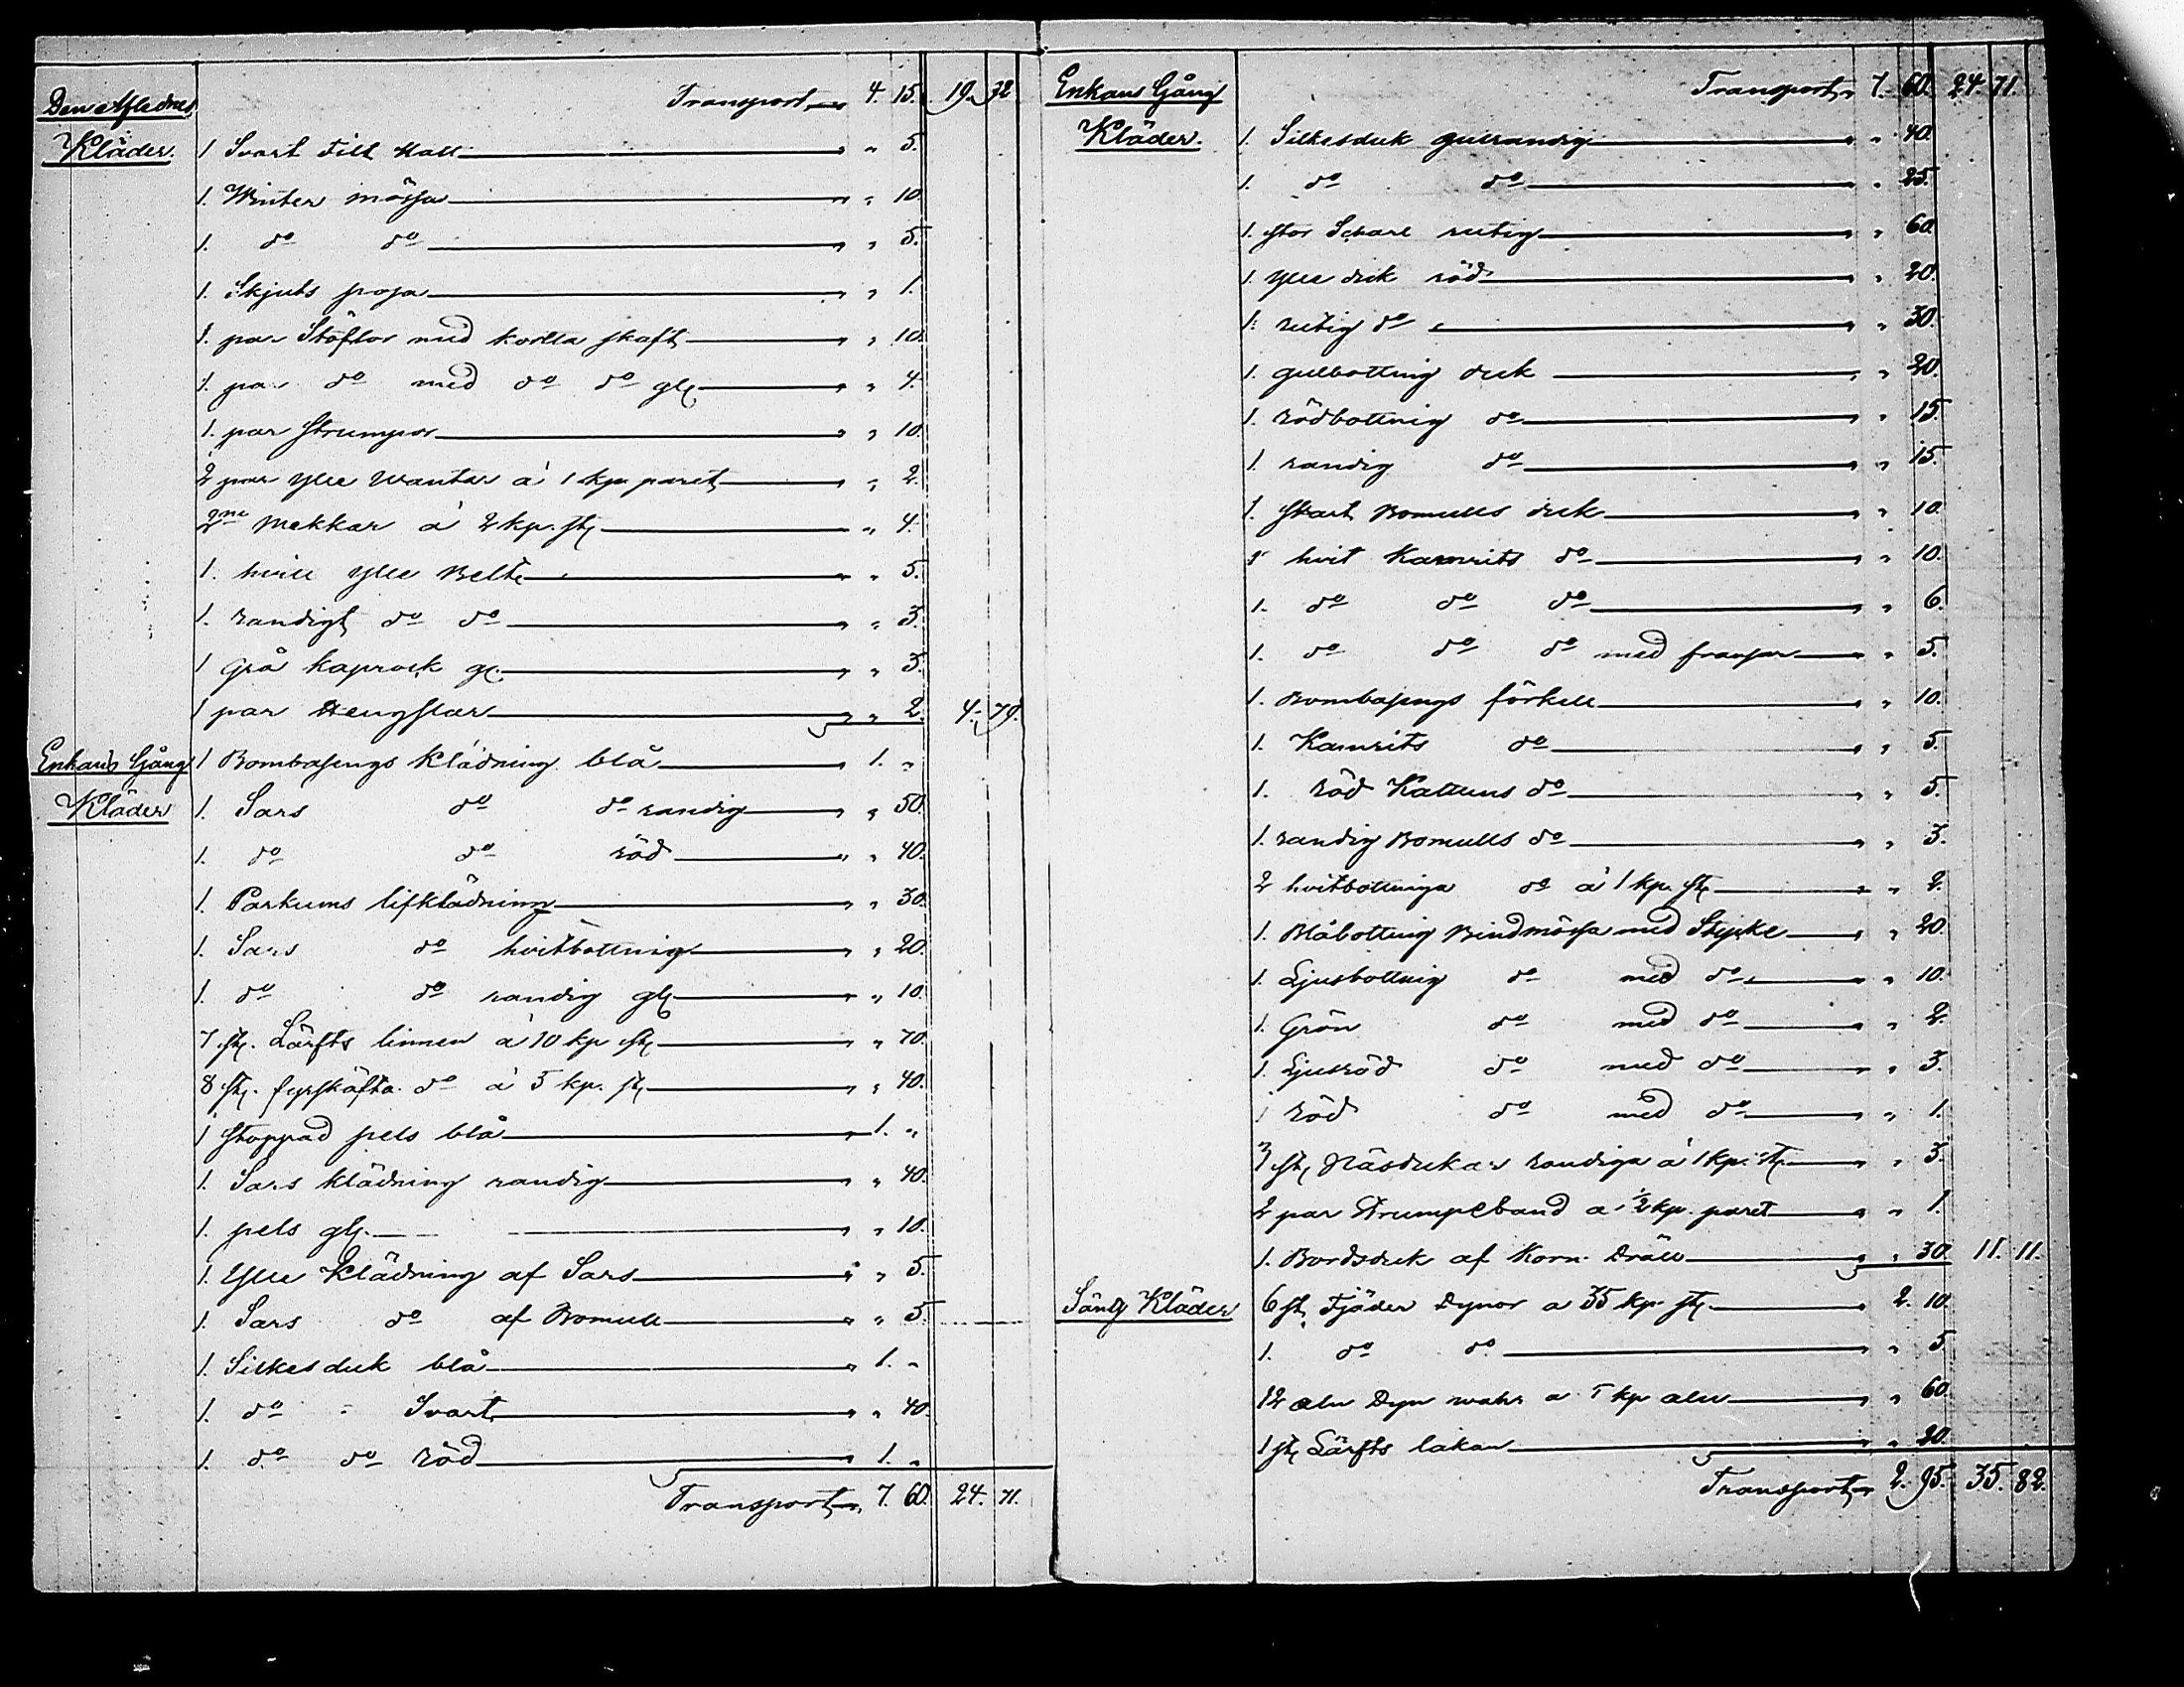 Den Aflednes Transport " 4. 15. 19. 92
Kläder. 1 Svart Filt Hatt " " 5.
1. Winter mössa " " 10
1. do do " " 5.
1. Skjuts påsa " " 1.
1. par Stöflor med korta skaft " " 10.
1. par do med do do gl. " " 4.
1. par strumpor " " 10.
2 par ylle wantar á 1 kp. paret " " 2.
2ne Mekkar á 2 kp. st. " " 4.
1. hvitt ylle Belte " " 5.
1. randigt do do " " 3.
1 Grå kaprock gl. " " 3.
1 par Hengslar " " 2. 4. 79.
Enkans Gång 1 Bombasengs Klädning blå " 1. "
Kläder 1. Sars do do randig " " 50.
1. do do röd " " 40.
1. Parkums lifklädning " " 30.
1. Sars do hvitbottnig " " 20.
1. do do randig gl. " " 10.
7 st. Lärfts linnen á 10 kp st. " " 70.
8 st. fyrskäfta do á 5 kp. st. " " 40.
1 stoppad pels blå " 1. "
1. Sars klädning randig " " 40.
1. pels gl. " " 10.
1. Ylle Klädning af Sars " " 5.
1. Sars do af Bomull " " 5.
1. Silkesduk blå " 1. "
1. do " Svart " " 40.
1. do do röd " 1. "
Transport " 7. 60. 24. 71.
Enkans Gång Transport " 7. 60. 24. 71.
Kläder. 1. Silkesduk gulrandig " " 40.
1. do do " " 25.
1. stor Schavl rutig " " 60.
1. Ylle duk röd " " 20.
1. rutig do " " 30.
1. gulbottnig duk " " 20.
1. rödbottnig do " " 15.
1. randig do " " 15.
1. svart Bomulls duk " " 10.
1. hvit Kamrits do " " 10.
1. do do do " " 6.
1. do do do med fransar " " 5.
1. Bombasengs förkell " " 10.
1. Kamrits do " " 5.
1. röd Kattuns do " " 5.
1. randig Bomulls do " " 3.
2 hvitbottniga do á 1 kp. st. " " 2.
1. Blåbottnig Bindmössa med Stycke " " 20.
1. Ljusbottnig do med do " " 10.
1. Grön do med do " " 2.
1. Ljusröd do med do " " 3.
1 röd do med do " " 1.
3 st. Näsdukar randiga á 1 kp. st. " " 3.
2 par Strumpeband a 1/2 kp. paret " " 1.
1. Bordsduk af Korn. Dräll " " 30. 11. 11.
Säng Kläder 6 st. Fjäder Dynor a 35 kp. st. " 2. 10.
1. do do " " 5
12 aln Dyn wahr a 5 kp aln " " 60.
1 st. Lärfts lakan " " 20.
Transport " 2. 95. 35. 82.